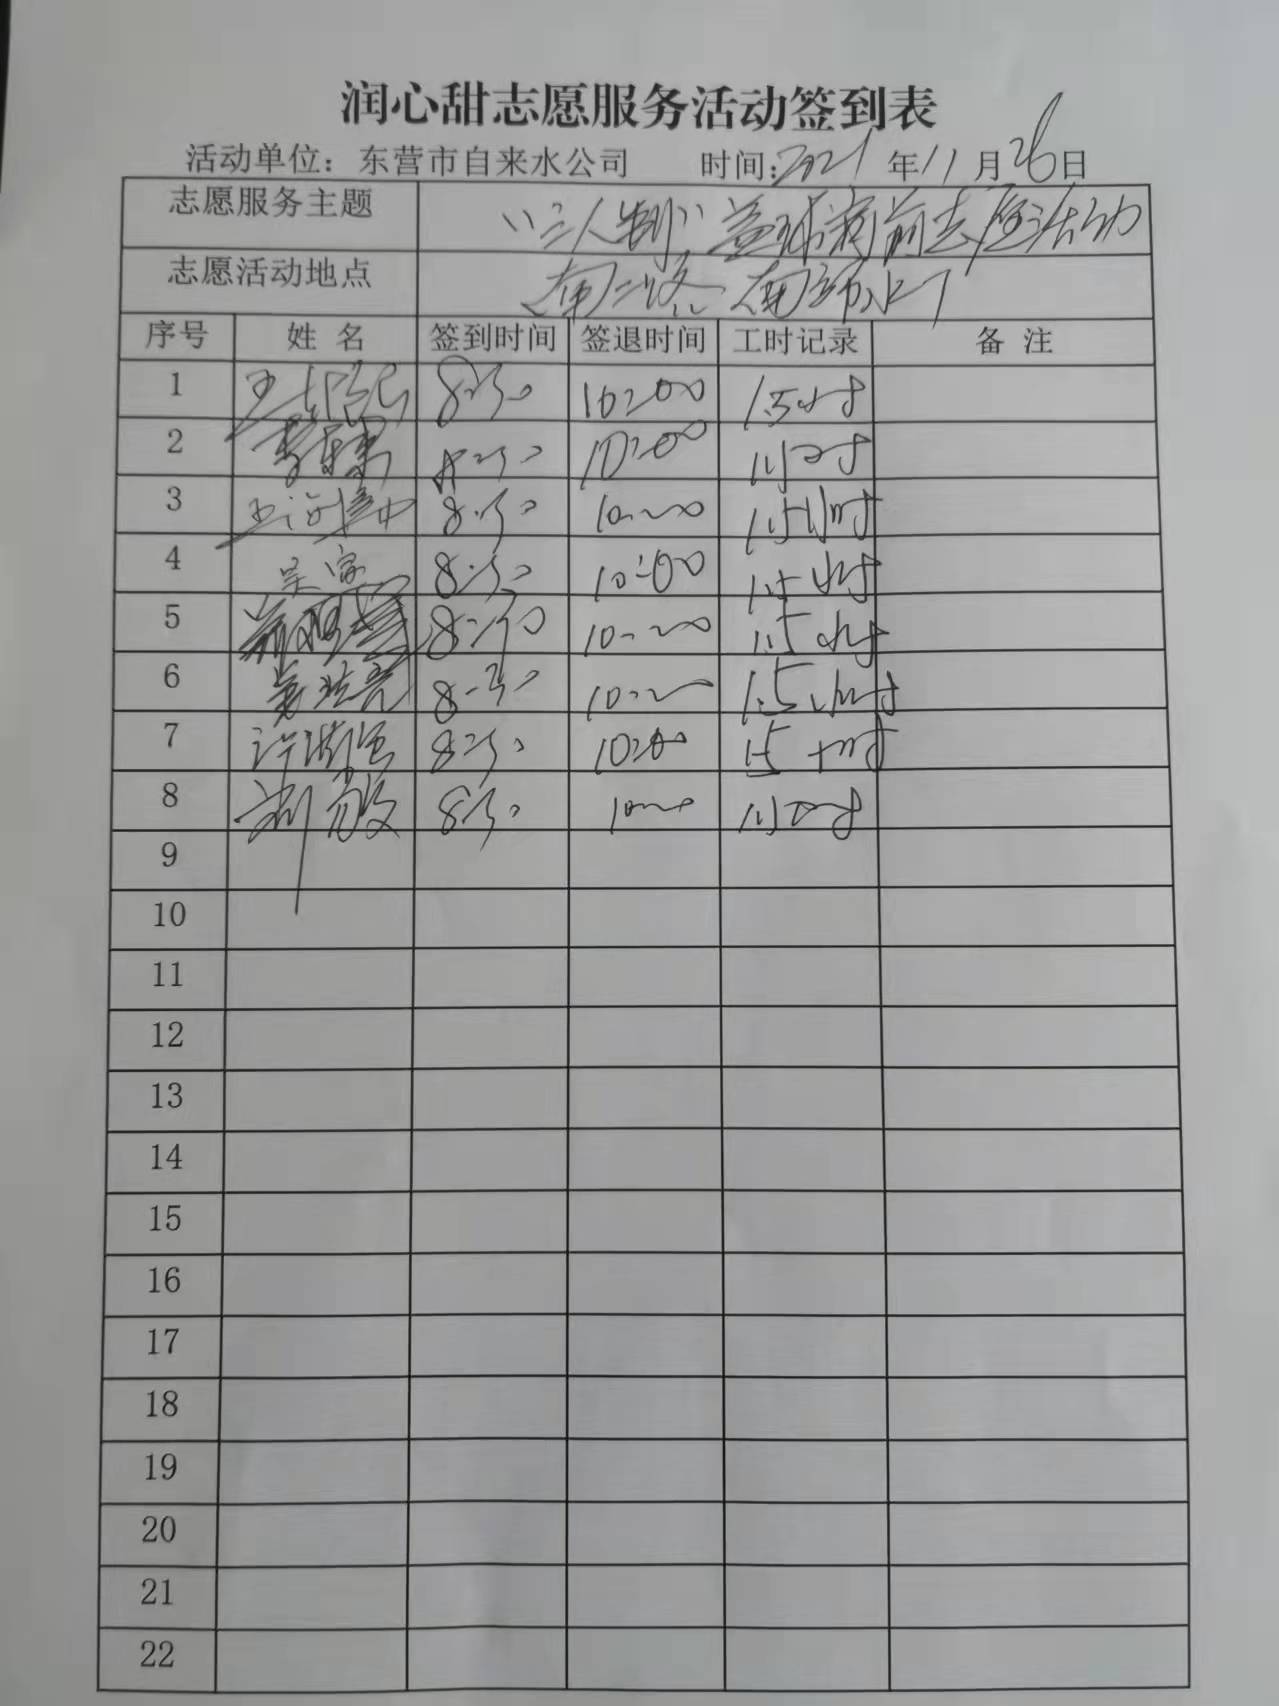 润心甜志愿服务活动签到表
活动单位：东营市自来水公司 时间：2021年11月26日
志愿服务主题 志愿活动
志愿活动地点 南二路南
序号 姓 名 签到时间 签退时间 工时记录 备 注
1 8:30 10:00 1.5小时
2 8:30 10:00 1.5小时
3 王海 8:30 10:00 1.5小时
4 吴家 8:30 10:00 1.5小时
5 8:30 10:00 1.5小时
6 8:30 10:00 1.5小时
7 许 8:30 10:00 1.5小时
8 刘敬 8:30 10:00 1.5小时
9
10
11
12
13
14
15
16
17
18
19
20
21
22